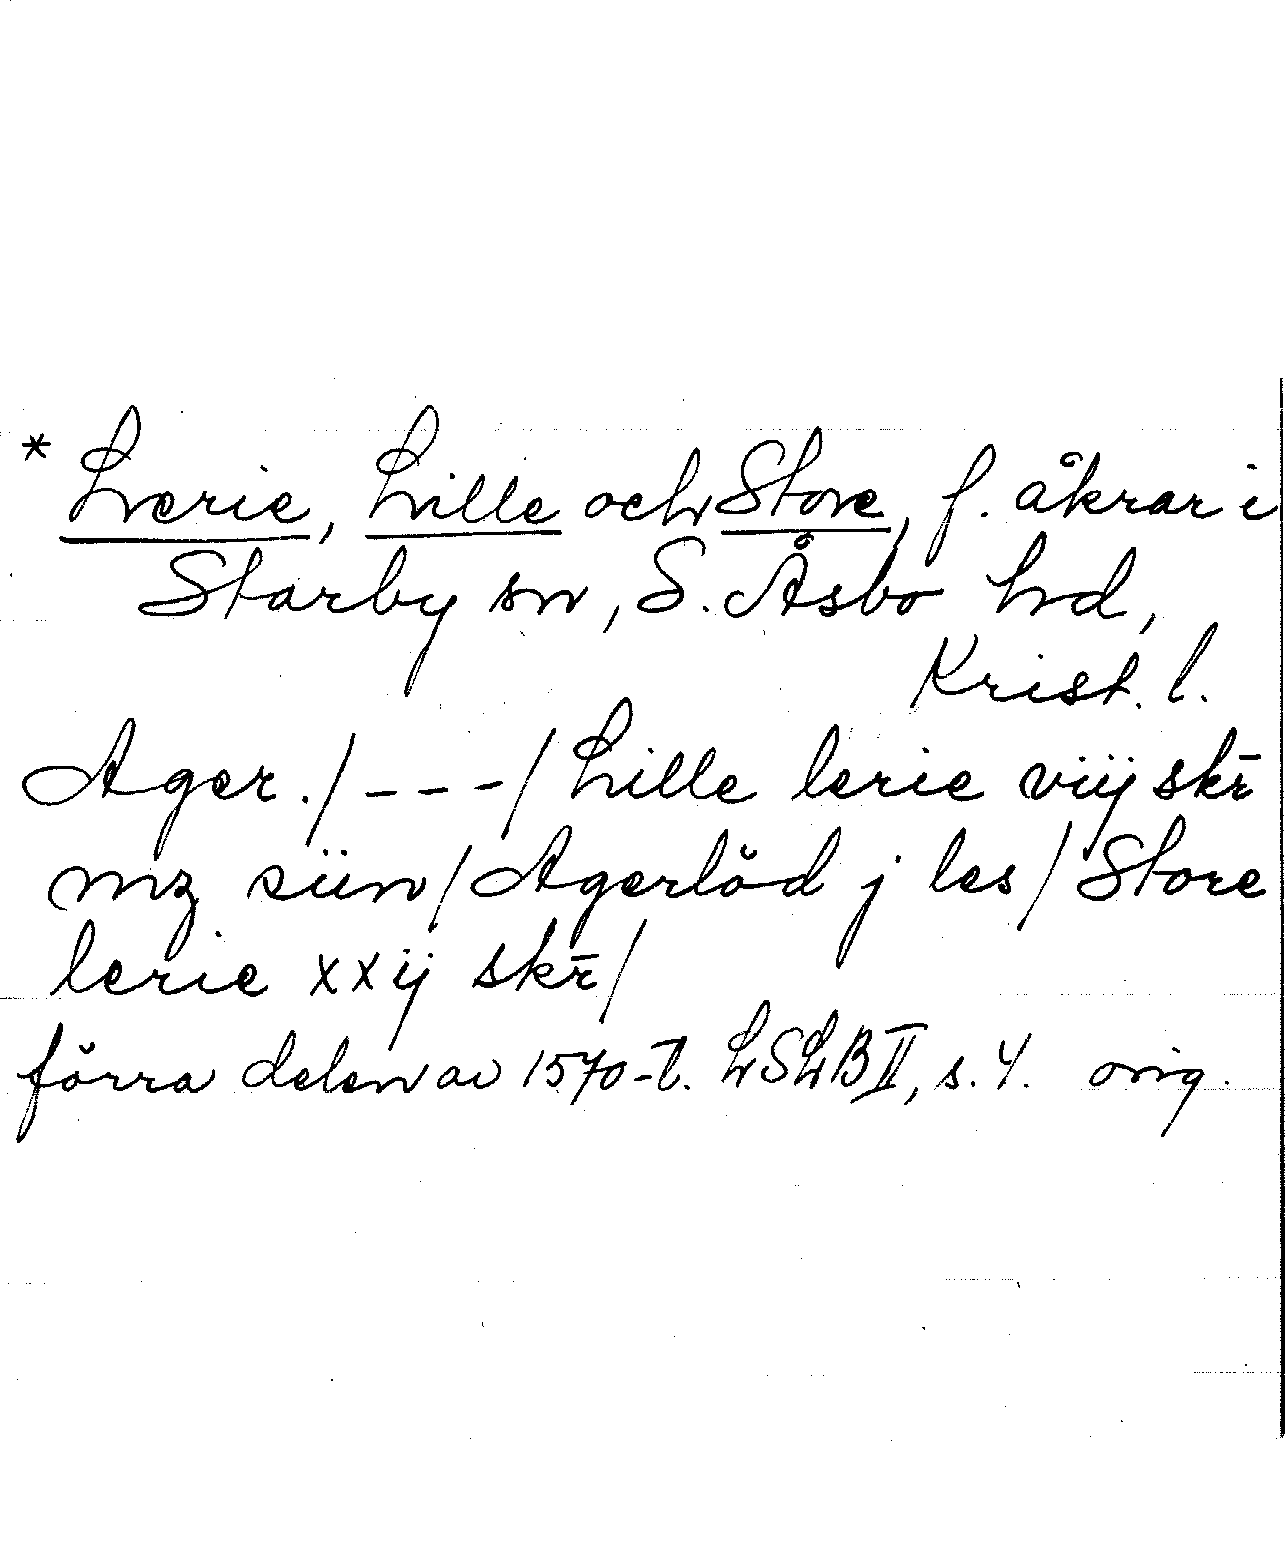 * Lerie, Lille och Store, f. åkrar i
Starby sn, S. Åsbo hd,
Krist. l.
Ager. / - - - / Lille lerie viij skr̄
mz siin / Agerlöd j les / Store
lerie xxij skr̄ /
förra delen av 1570-t. LSLB II, s. 4. orig.